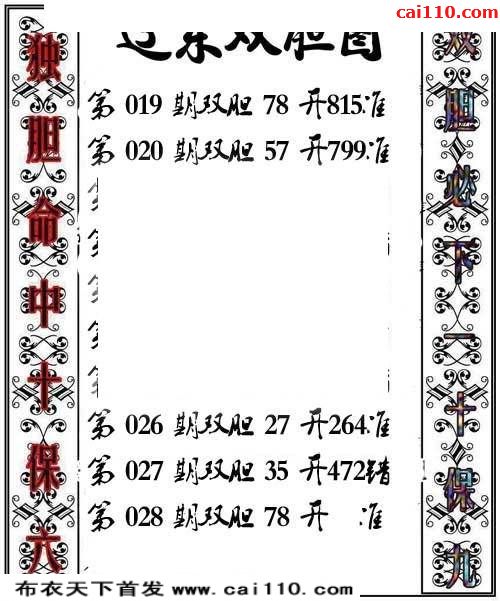 cai110.com
东双胆图
独胆命中十保六
第 019 期双胆 78 开815准
第 020 期双胆 57 开799准
第 026 期双胆 27 开264准
第 027 期双胆 35 开472错
第 028 期双胆 78 开 准
双胆必下一十保九
布衣天下首发 www.cai110.com